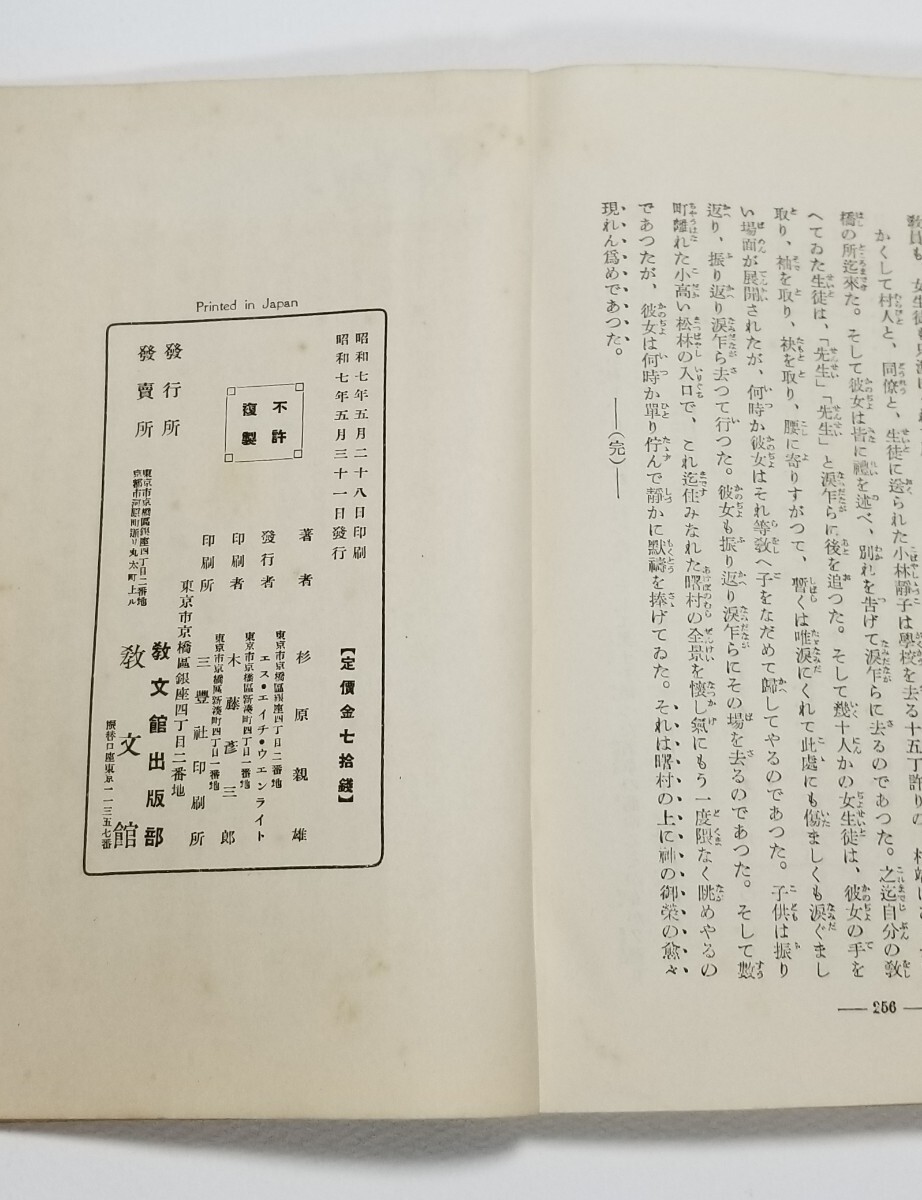 かくして村人と、同僚と、生徒に送られた小林靜子は學校を去る十五丁許りの、村端にさ
橋の所迄來た。そして彼女は皆に禮を述べ、別れを告げて涙乍らに去るのであつた。之迄自分の敎
へてゐた生徒は、「先生」「先生」と涙乍らに後を追つた。そして幾十人かの女生徒は、彼女の手を
取り、袖を取り、袂を取り、腰に寄りすがつて、暫くは唯涙にくれて此處にも傷ましくも涙ぐまし
い場面が展開されたが、何時か彼女はそれ等敎へ子をなだめて歸してやるのであつた。子供は振り
返り、振り返り涙乍ら去つて行つた。彼女も振り返り涙乍らにその場を去るのであつた。そして數
町離れた小高い松林の入口で、これ迄住みなれた曙村の全景を懷し氣にもう一度隈なく眺めやるの
であつたが、彼女は何時か單り佇んで靜かに默禱を捧げてゐた。それは曙村の上に神の御榮の愈々
現れん爲めであつた。 ――(完)――
―― 256 ――
Printed in Japan
昭和七年五月二十八日印刷
昭和七年五月三十一日發行
【定價金七拾錢】
不許
複製
著者 杉原親雄
東京市京橋區銀座四丁目二番地
發行者 エス・エイチ・ウエンライト
東京市京橋區新湊町四丁目一番地
印刷者 木藤彥三郎
東京市京橋區新湊町四丁目一番地
印刷所 三豐社印刷所
東京市京橋區銀座四丁目二番地
發行所 敎文館出版部
東京市京橋區銀座四丁目二番地
京都市河原町通リ丸太町上ル
發賣所 敎文館
振替口座東京一一三五七番